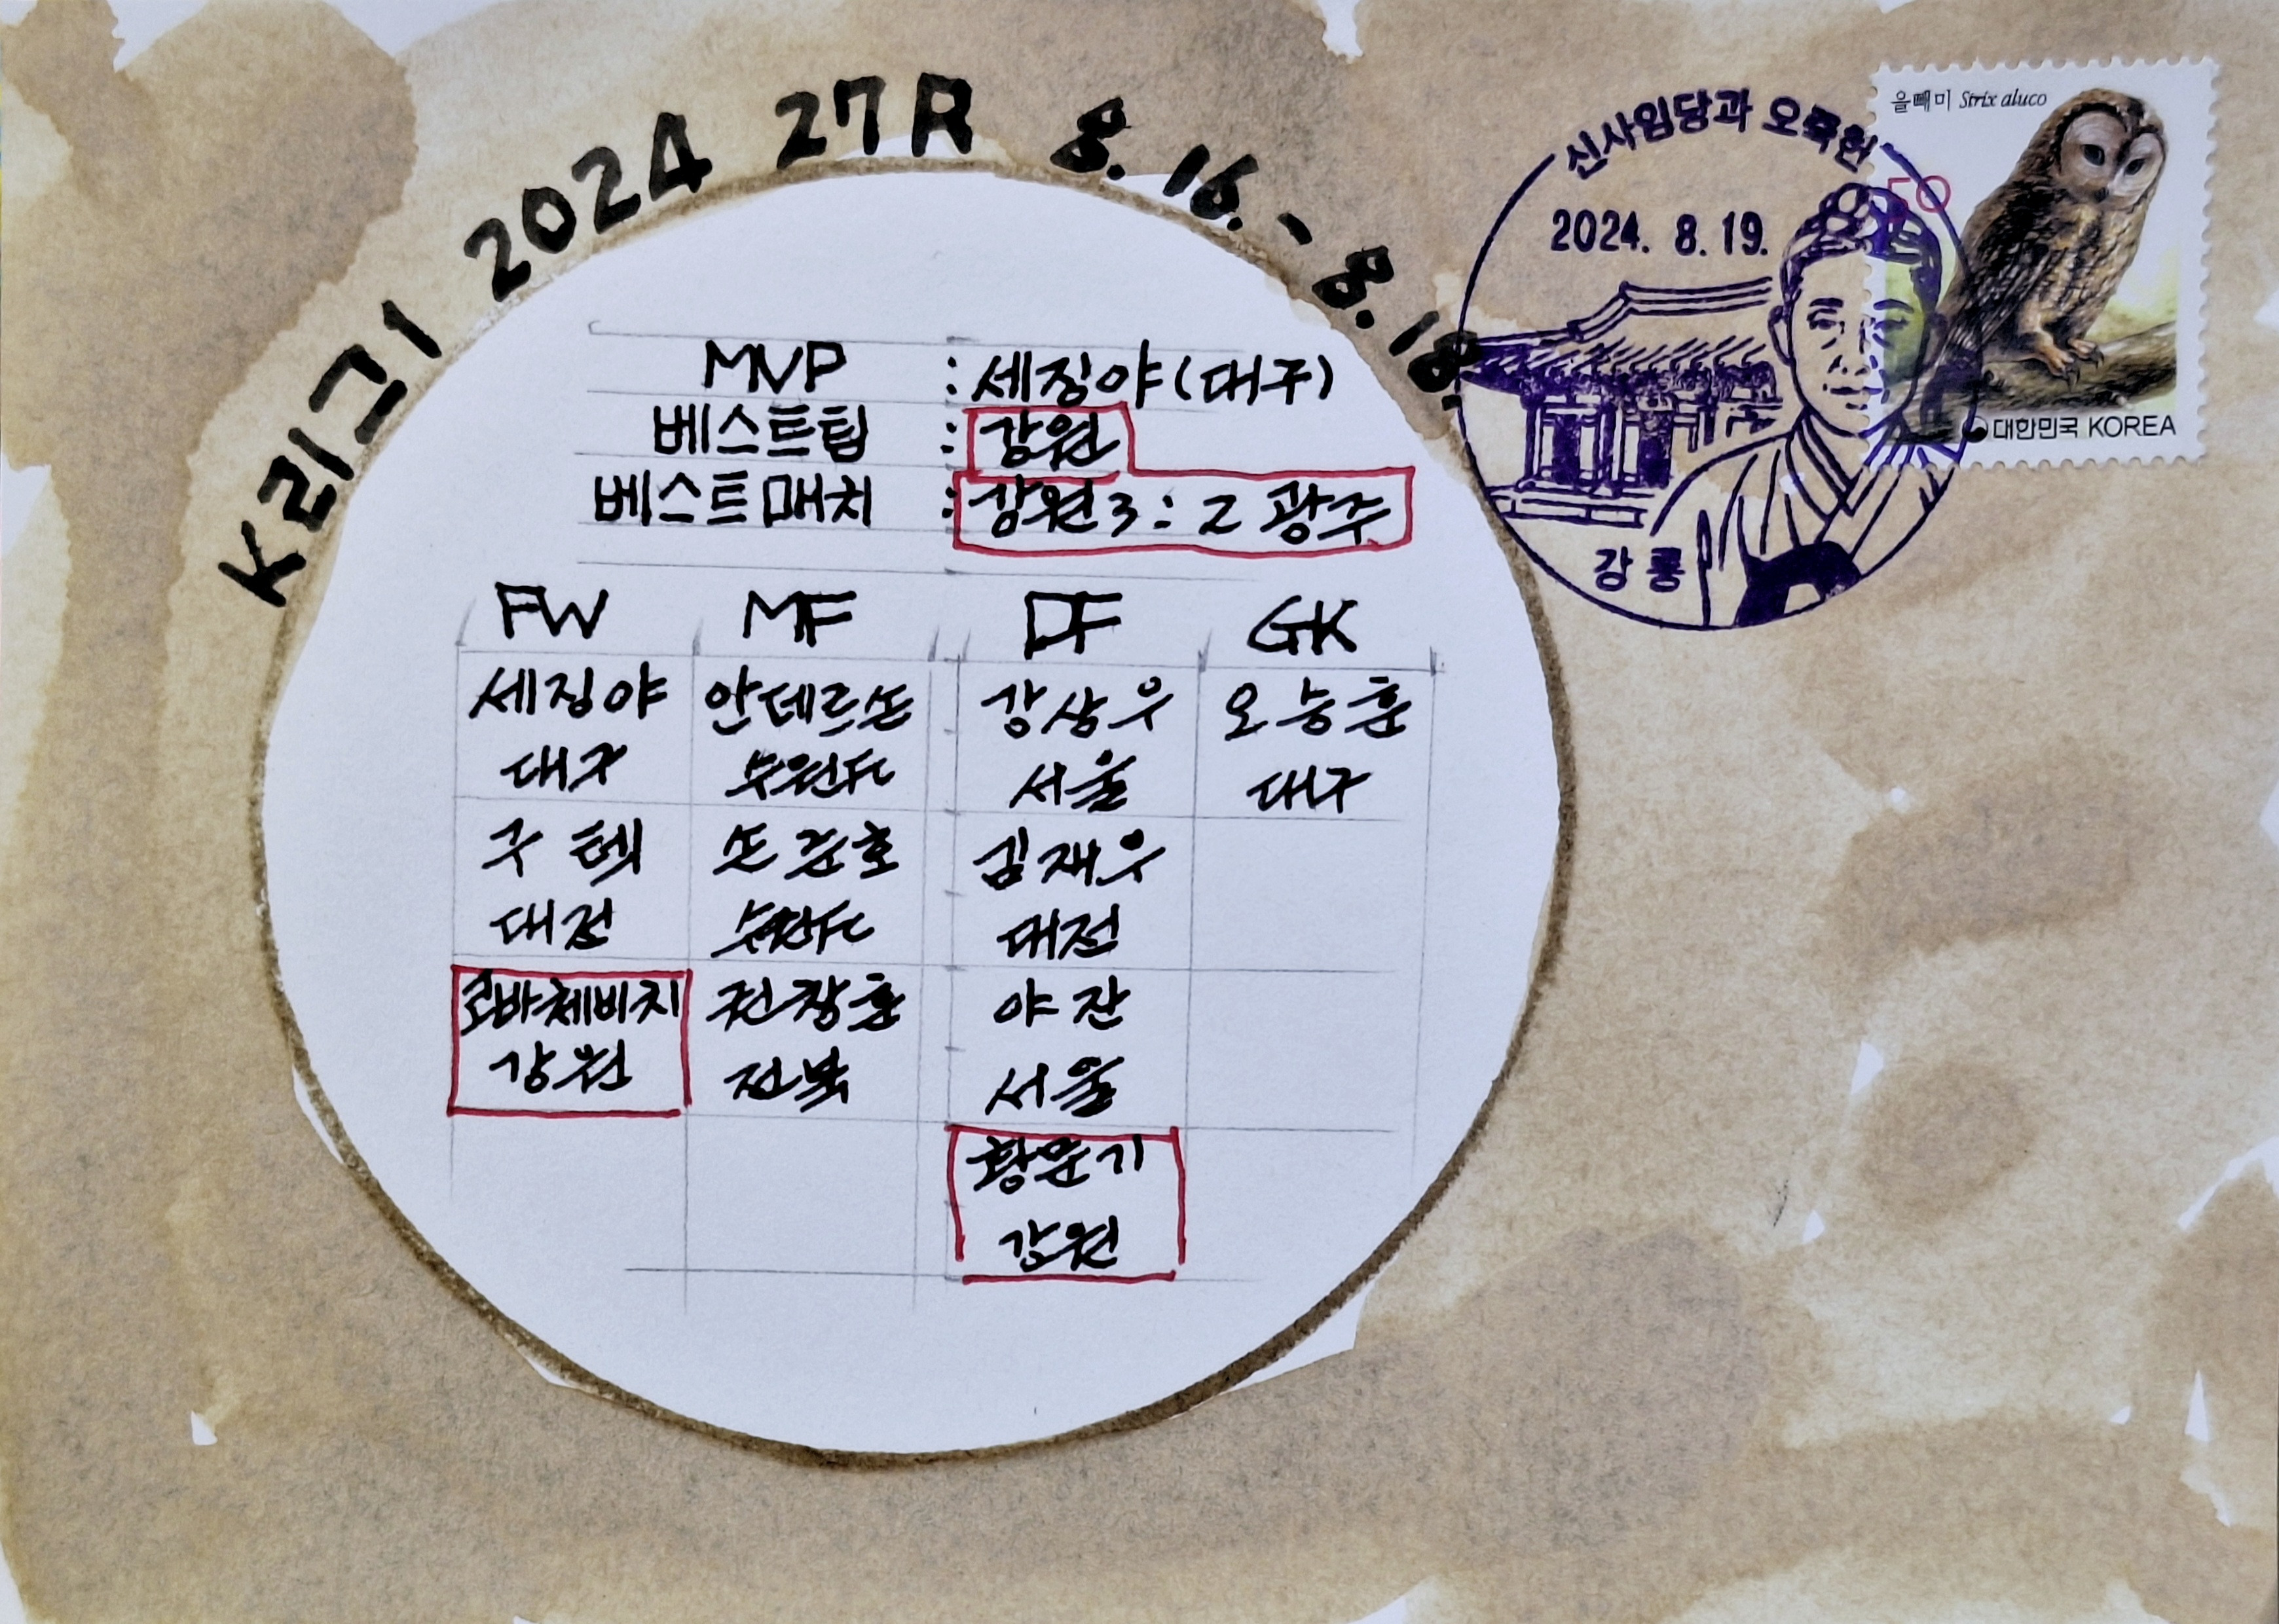 K리그1 2024 27R 8.16.-8.18.
신사임당과 오죽헌
2024. 8. 19.
강릉
올빼미 Strix aluco
50
대한민국 KOREA
MVP : 세징야(대구)
베스트팀 : 강원
베스트매치 : 강원 3:2 광주
FW MF DF GK
세징야 안데르손 강상우 오승훈
대구 수원FC 서울 대구
구텍 손준호 김재우
대전 수원FC 대전
코바체비치 전창훈 야잔
강원 전북 서울
황문기
강원